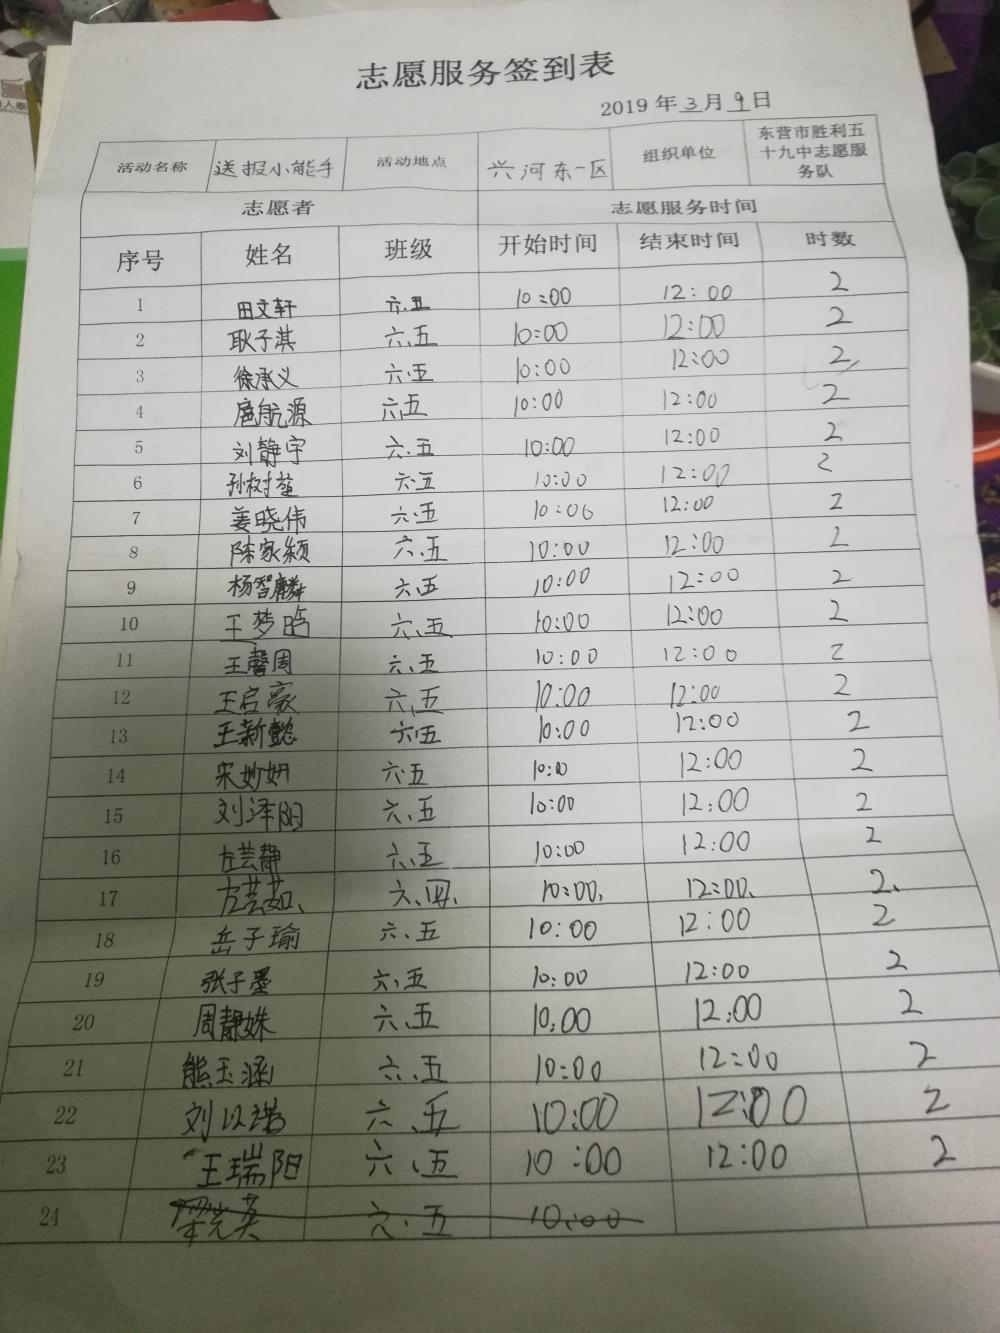 志愿服务签到表
2019年3月9日
活动名称 送报小能手 活动地点 兴河东一区 组织单位 东营市胜利五十九中志愿服务队
志愿者 志愿服务时间
序号 姓名 班级 开始时间 结束时间 时数
1 田文轩 六.五 10:00 12:00 2
2 耿子淇 六、五 10:00 12:00 2
3 徐承义 六.五 10:00 12:00 2
4 扈航源 六五 10:00 12:00 2
5 刘静宇 六.五 10:00 12:00 2
6 孙树堃 六.五 10:00 12:00 2
7 姜晓伟 六.五 10:00 12:00 2
8 陈家颍 六、五 10:00 12:00 2
9 杨智麟 六五 10:00 12:00 2
10 王梦晗 六、五 10:00 12:00 2
11 王馨周 六、五 10:00 12:00 2
12 王启豪 六、五 10:00 12:00 2
13 王新懿 六五 10:00 12:00 2
14 宋妙妍 六.五 10:0 12:00 2
15 刘泽阳 六、五 10:00 12:00 2
16 左芸静 六、五 10:00 12:00 2
17 左芸茹、 六、四、 10:00、 12:00、 2、
18 岳子瑜 六、五 10:00 12:00 2
19 张子墨 六、五 10:00 12:00 2
20 周静姝 六、五 10:00 12:00 2
21 熊玉涵 六、五 10:00 12:00 2
22 刘以诺 六、五 10:00 12:00 2
23 王瑞阳 六、五 10:00 12:00 2
24 六.五 10:00